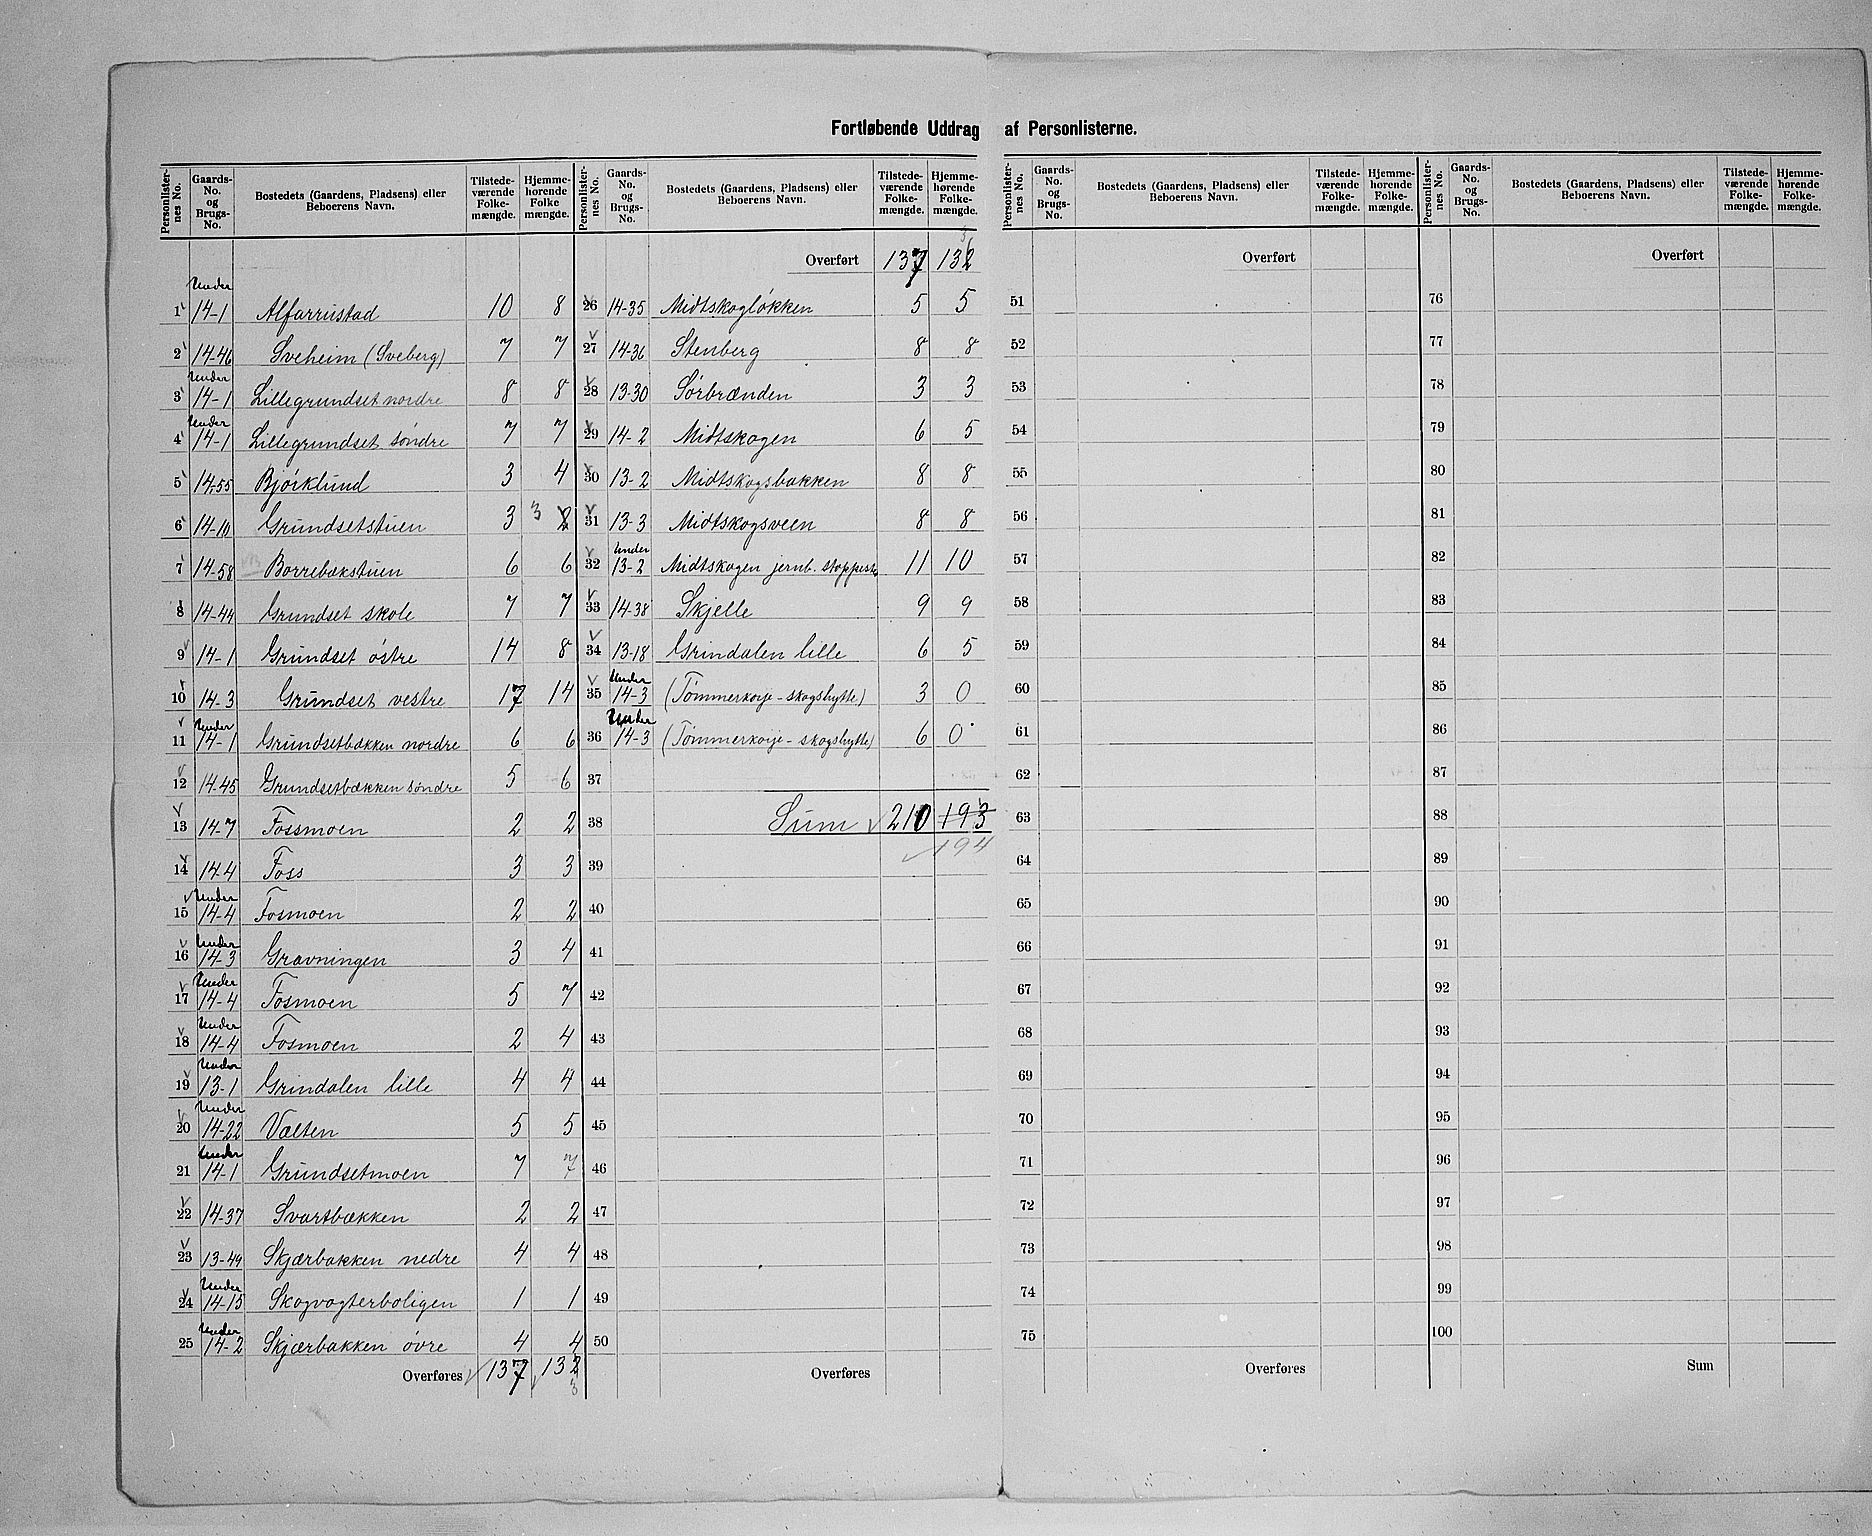 Fortløbende Uddrag af Personlisterne.
Personlisternes No. | Gaards-No. og Brugs-No. | Bostedets (Gaardens, Pladsens) eller Beboerens Navn. | Tilstedeværende Folkemængde. | Hjemmehørende Folke mængde.
1 | Under 14-1 | Alfarrustad | 10 | 8
2 | 14-46 | Sveheim (Sveberg) | 7 | 7
3 | Under 14-1 | Lillegrundset nordre | 8 | 8
4 | Under 14-1 | Lillegrundset søndre | 7 | 7
5 | 14,55 | Bjørklund | 3 | 4
6 | 14-10 | Grundsetstuen | 3 | 3 2
7 | 14-58 | Borrebækstuen | 6 | 6
8 | 14-44 | Grundset skole | 7 | 7
9 | 14-1 | Grundset østre | 14 | 8
10 | 14-3 | Grundset vestre | 17 | 14
11 | Under 14-1 | Grundsetbækken nordre | 6 | 6
12 | 14-45 | Grundsetbækken søndre | 5 | 6
13 | 14-7 | Fossmoen | 2 | 2
14 | 14-4 | Foss | 3 | 3
15 | Under 14-4 | Fosmoen | 2 | 2
16 | Under 14-3 | Gravningen | 3 | 4
17 | Under 14-4 | Fosmoen | 5 | 7
18 | Under 14-4 | Fosmoen | 2 | 4
19 | Under 13-1 | Grindalen lille | 4 | 4
20 | Under 14-22 | Vælten | 5 | 5
21 | Under 14-1 | Grundsetmoen | 7 | 7
22 | 14-37 | Svartbækken | 2 | 2
23 | 13-49 | Skjærbakken nedre | 4 | 4
24 | Under 14-15 | Skogvogterboligen | 1 | 1
25 | Under 14-2 | Skjærbakken øvre | 4 | 4
Overføres 137 132 3
Personlisternes No. | Gaards-No. og Brugs-No. | Bostedets (Gaardens, Pladsens) eller Beboerens Navn. | Tilstedeværende Folkemængde. | Hjemmehørende Folkemængde.
Overført 137 132 3
26 | 14-35 | Midtskogløkken | 5 | 5
27 | 14-36 | Stenberg | 8 | 8
28 | 13-30 | Sørbrænden | 3 | 3
29 | 14-2 | Midtskogen | 6 | 5
30 | 13-2 | Midtskogsbakken | 8 | 8
31 | 13-3 | Midtskogsveen | 8 | 8
32 | Under 13-2 | Midtskogen jernb. stoppest. | 11 | 10
33 | 14-38 | Skjelle | 9 | 9
34 | 13-18 | Grindalen lille | 6 | 5
35 | Under 14-3 | (Tømmerkoije - skogshytte) | 3 | 0
36 | Under 14-3 | (Tømmerkoije - skogshytte) | 6 | 0
37
38 Sum 210 193
194
39
40
41
42
43
44
45
46
47
48
49
50
Overføres
Personlisternes No. | Gaards-No. og Brugs-No. | Bostedets (Gaardens, Pladsens) eller Beboerens Navn. | Tilstedeværende Folkemængde. | Hjemmehørende Folkemængde.
Overført
51
52
53
54
55
56
57
58
59
60
61
62
63
64
65
66
67
68
69
70
71
72
73
74
75
Overføres
Personlisternes No. | Gaards-No. og Brugs-No. | Bostedets (Gaardens, Pladsens) eller Beboerens Navn. | Tilstedeværende Folkemængde. | Hjemmehørende Folkemængde.
Overført
76
77
78
79
80
81
82
83
84
85
86
87
88
89
90
91
92
93
94
95
96
97
98
99
100
Sum